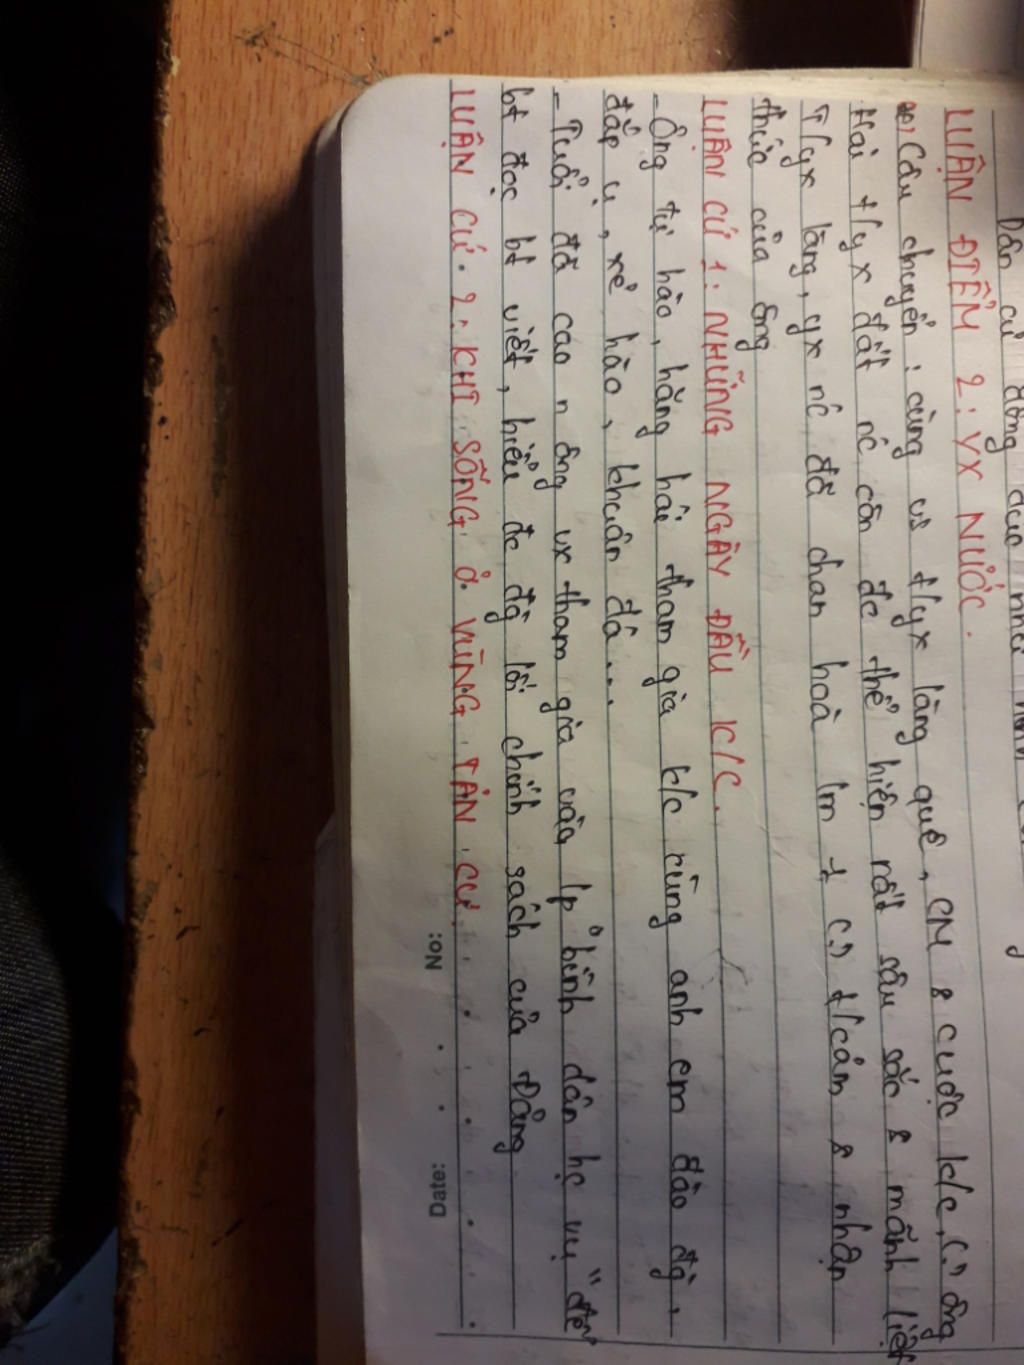 Dẫn cứ
LUẬN ĐIỂM 2: YX NƯỚC.
Câu chuyện: cùng vs t/yx làng quê, CM & cuộc k/c, ông
Hai t/yx đất nc còn đc thể hiện rất sâu sắc & mãnh liệt
T/yx làng, yx nc đã chan hoà lm 1 t/cảm & nhận
thức của ông
LUẬN CỨ 1: NHỮNG NGÀY ĐẦU K/C.
- Ông tự hào, hăng hái tham gia k/c cùng anh em đào đg,
đắp ụ, xẻ hào, khuân đá...
- Tuổi đã cao n ông vx tham gia vào lp bình dân họ vụ " để
bt đọc bt viết, hiểu đc đg lối chính sách của Đảng
LUẬN CỨ. 2: KHI SỐNG Ở VÙNG TẢN CƯ
No: Date: